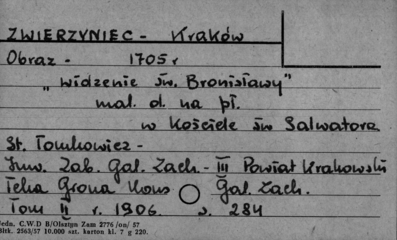 ZWIERZYNIEC - Kraków
Obraz - 1705 r
„widzenie św. Bronisławy"
mal. d. na pł.
w Kościele św Salwatora
St. Tomkowicz -
Inw. Zab. Gal. Zach. - III Powiat Krakowski
Teka Grona Kons Gal. Zach.
Tom II r. 1906. s. 284
Jedn. C.W.D B/Olsztyn Zam 2776/on/57
Bltk. 2565/57 10.000 szt. karton kl. 7 g 220.